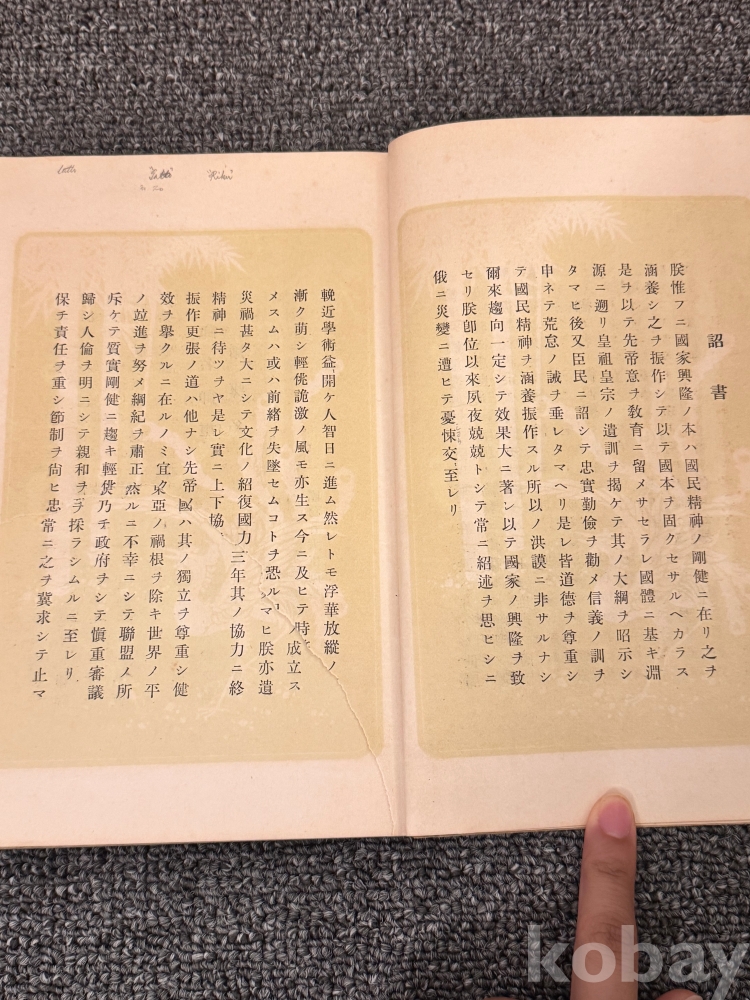 詔書
朕惟フニ國家興隆ノ本ハ國民精神ノ剛健ニ在リ之ヲ
涵養シ之ヲ振作シテ以テ國本ヲ固クセサルヘカラス
是ヲ以テ先帝意ヲ教育ニ留メサセラレ國體ニ基キ淵
源ニ遡リ皇祖皇宗ノ遺訓ヲ掲ケテ其ノ大綱ヲ昭示シ
タマヒ後又臣民ニ詔シテ忠實勤儉ヲ勸メ信義ノ訓ヲ
申ネテ荒怠ノ誡ヲ垂レタマヘリ是レ皆道德ヲ尊重シ
テ國民精神ヲ涵養振作スル所以ノ洪謨ニ非サルナシ
爾來趨向一定シテ效果大ニ著レ以テ國家ノ興隆ヲ致
セリ朕卽位以來夙夜兢兢トシテ常ニ紹述ヲ思ヒシニ
俄ニ災變ニ遭ヒテ憂悚交至レリ
輓近學術益開ケ人智日ニ進ム然レトモ浮華放縱ノ
漸ク萌シ輕佻詭激ノ風モ亦生ス今ニ及ヒテ時ノ成立ス
メスムハ或ハ前緒ヲ失墜セムコトヲ恐ルマヒ朕亦遺
災禍甚タ大ニシテ文化ノ紹復國力三年其ノ協力ニ終
精神ニ待ツヲヤ是レ實ニ上下協
振作更張ノ道ハ他ナシ先帝國ハ其ノ獨立ヲ尊重シ健
效ヲ擧クルニ在ルノミ宜東亞ノ禍根ヲ除キ世界ノ平
ノ竝進ヲ努メ綱紀ヲ肅正然ルニ不幸ニシテ聯盟ノ所
斥ケテ質實剛健ニ趨キ輕佻乃チ政府ヲシテ愼重審議
歸シ人倫ヲ明ニシテ親和ヲ採ラシムルニ至レリ
保チ責任ヲ重シ節制ヲ尚ヒ忠常ニ之ヲ冀求シテ止マ
kobay